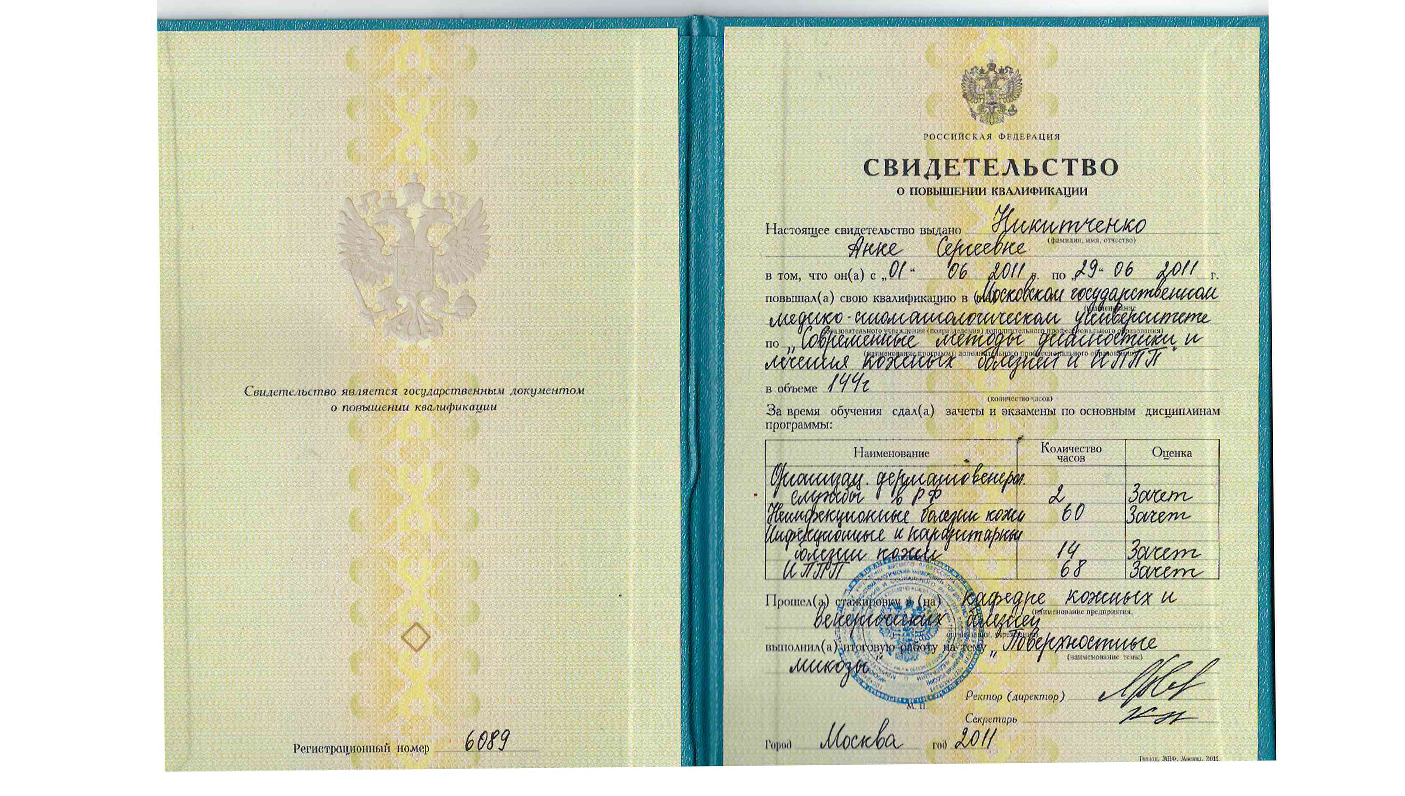 Свидетельство является государственным документом
о повышении квалификации
Регистрационный номер 6089
РОССИЙСКАЯ ФЕДЕРАЦИЯ
СВИДЕТЕЛЬСТВО
О ПОВЫШЕНИИ КВАЛИФИКАЦИИ
Настоящее свидетельство выдано Никитченко
(фамилия, имя, отчество)
Анне Сергеевне
в том, что он(а) с „01“ 06 2011 г. по „29“ 06 2011 г.
повышал(а) свою квалификацию в Московском государственном
медико-стоматологическом университете
по „Современные методы диагностики и
лечения кожных болезней и ИППП“
в объеме 144г
(количество часов)
За время обучения сдал(а) зачеты и экзамены по основным дисциплинам
программы:
Наименование Количество часов Оценка
Организац. дерматовенерол.
службы в РФ 2 Зачет
Неинфекционные болезни кожи 60 Зачет
Инфекционные и паразитарные
болезни кожи 14 Зачет
ИППП 68 Зачет
Прошел(а) стажировку в (на) кафедре кожных и
(наименование предприятия,
венерических болезней
выполнил(а) итоговую работу на тему „Поверхностные
(наименование темы)
микозы“
М. П.
Ректор (директор)
Секретарь
Город Москва год 2011